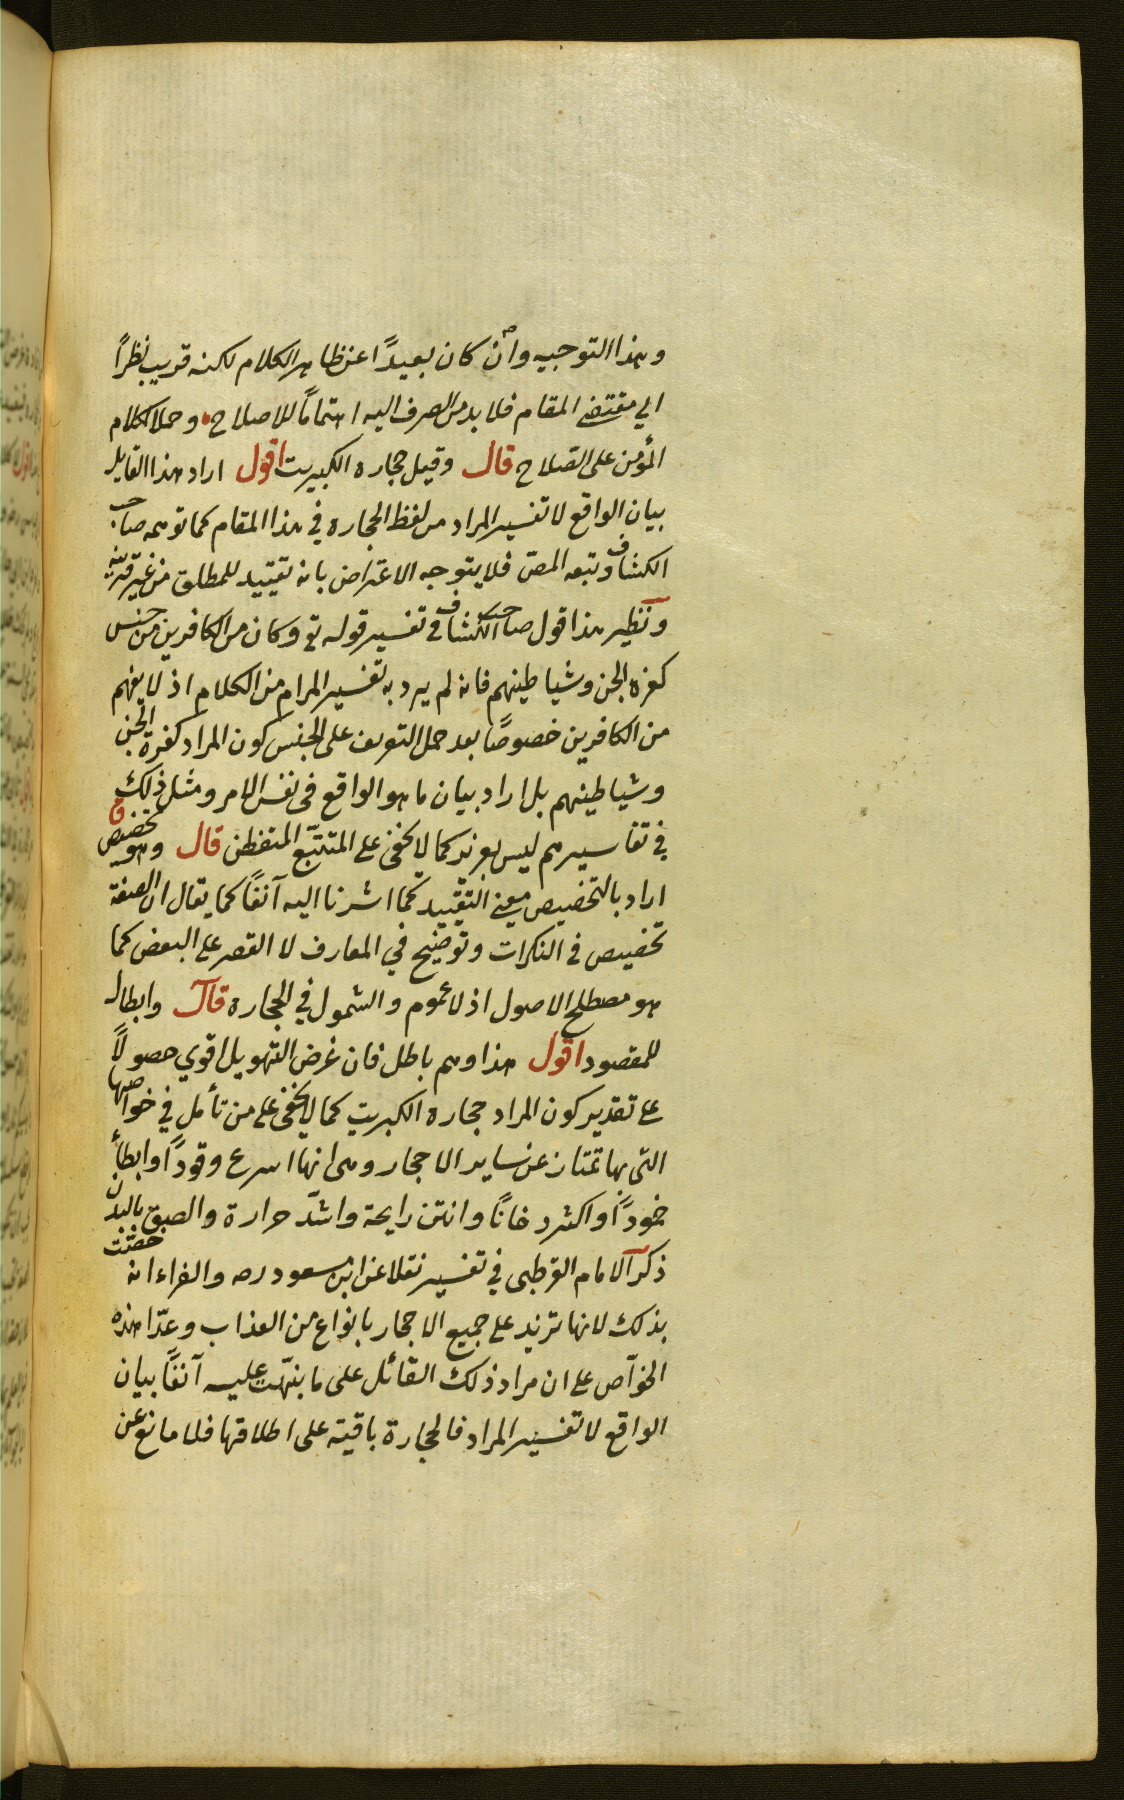 وهذا التوجيه وان كان بعيداً عن ظاهر الكلام لكنه قريب نظراً
الي مقتضي المقام فلا بد من الصرف اليه اهتماماً للاصلاح وحملا لكلام
المؤمن على الصلاح قال وقيل حجارة الكبريت اقول اراد هذا القايل
بيان الواقع لا تفسير المراد من لفظ الحجارة في هذا المقام كما توهمه صاحب
الكشاف وتبعه المص فلا يتوجه الاعتراض بانه تقييد للمطلق من غير قرينه
ونظير هذا قول صاحب الكشاف في تفسير قوله تع وكان من الكافرين من جنس
كفرة الجن وشياطينهم فانه لم يرد به تفسير المرام من الكلام اذ لا يفهم
من الكافرين خصوصاً بعد حمل التعريف على الجنس كون المراد كفرة الجن
وشياطينهم بل اراد بيان ما هو الواقع في نفس الامر ومثل ذلك
في تفاسيرهم ليس بعزيز كما لا يخفى على المتتبّع المتفطن قال وهو تخصيص
اراد بالتخصيص معني التقييد كما اشرنا اليه آنفاً كما يقال ان الصفة
تخصيص في النكرات وتوضيح في المعارف لا القصر على البعض كما
هو مصطلح الاصول اذ لا عموم والشمول في الحجارة قال وابطال
للمقصود اقول هذا وهم باطل فان غرض التهويل اقوي حصولاً
على تقدير كون المراد حجارة الكبريت كما لا يخفى على من تأمل في خواصها
التي بها تمتاز عن ساير الاحجار وهي انها اسرع وقوداً وابطأ
خموداً واكثر دخانًا وانتن رايحة واشدّ حرارة والصق بالبدن
ذكر الامام القرطبي في تفسيره نقلا عن ابن مسعود رضه والفراء انه خصّت
بذلك لانها تزيد على جميع الاحجار بانواع من العذاب وعدّا هذه
الخواّص على ان مراد ذلك القائل على ما بنّهت عليه آنفاً بيان
الواقع لا تفسير المراد فالحجارة باقية على اطلاقها فلا مانع عن